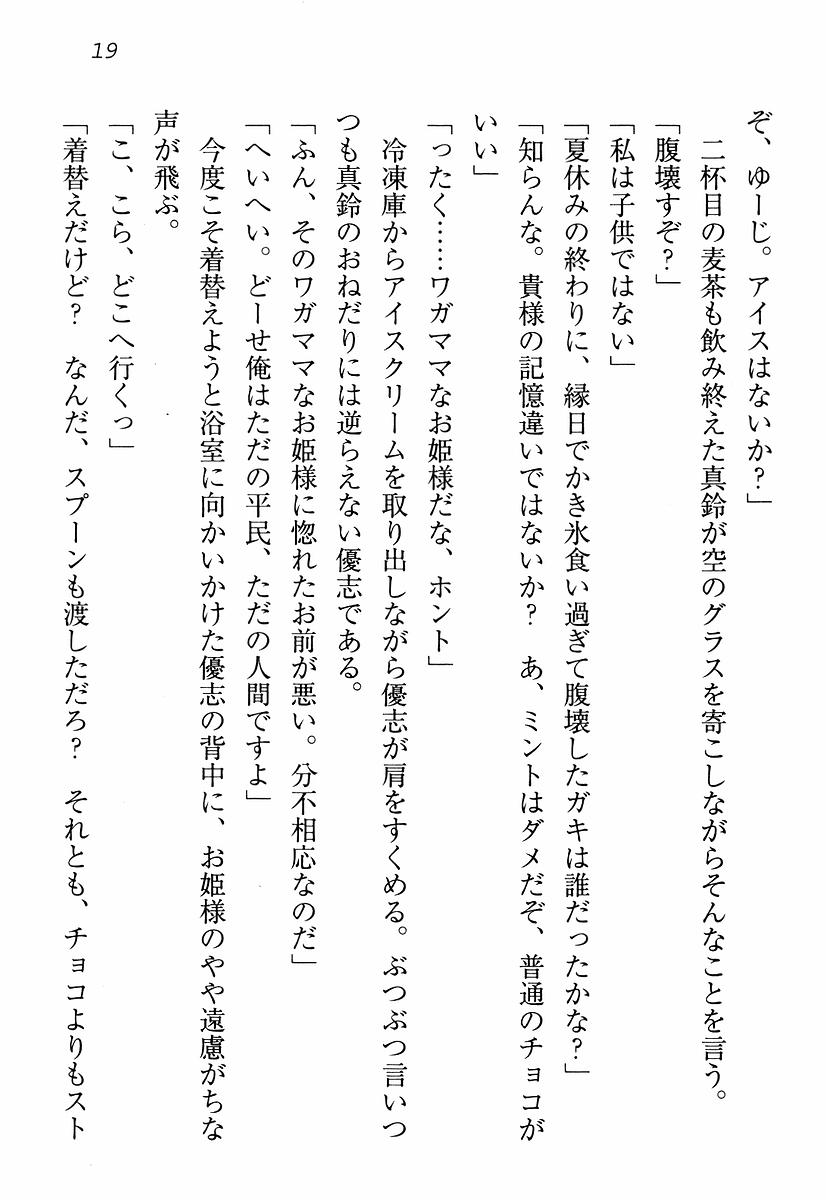 19
ぞ、ゆーじ。アイスはないか？」
　二杯目の麦茶も飲み終えた真鈴が空のグラスを寄こしながらそんなことを言う。
「腹壊すぞ？」
「私は子供ではない」
「夏休みの終わりに、縁日でかき氷食い過ぎて腹壊したガキは誰だったかな？」
「知らんな。貴様の記憶違いではないか？　あ、ミントはダメだぞ、普通のチョコが
いい」
「ったく……ワガママなお姫様だな、ホント」
　冷凍庫からアイスクリームを取り出しながら優志が肩をすくめる。ぶつぶつ言いつ
つも真鈴のおねだりには逆らえない優志である。
「ふん、そのワガママなお姫様に惚れたお前が悪い。分不相応なのだ」
「へいへい。どーせ俺はただの平民、ただの人間ですよ」
　今度こそ着替えようと浴室に向かいかけた優志の背中に、お姫様のやや遠慮がちな
声が飛ぶ。
「こ、こら、どこへ行くっ」
「着替えだけど？　なんだ、スプーンも渡しただろ？　それとも、チョコよりもスト